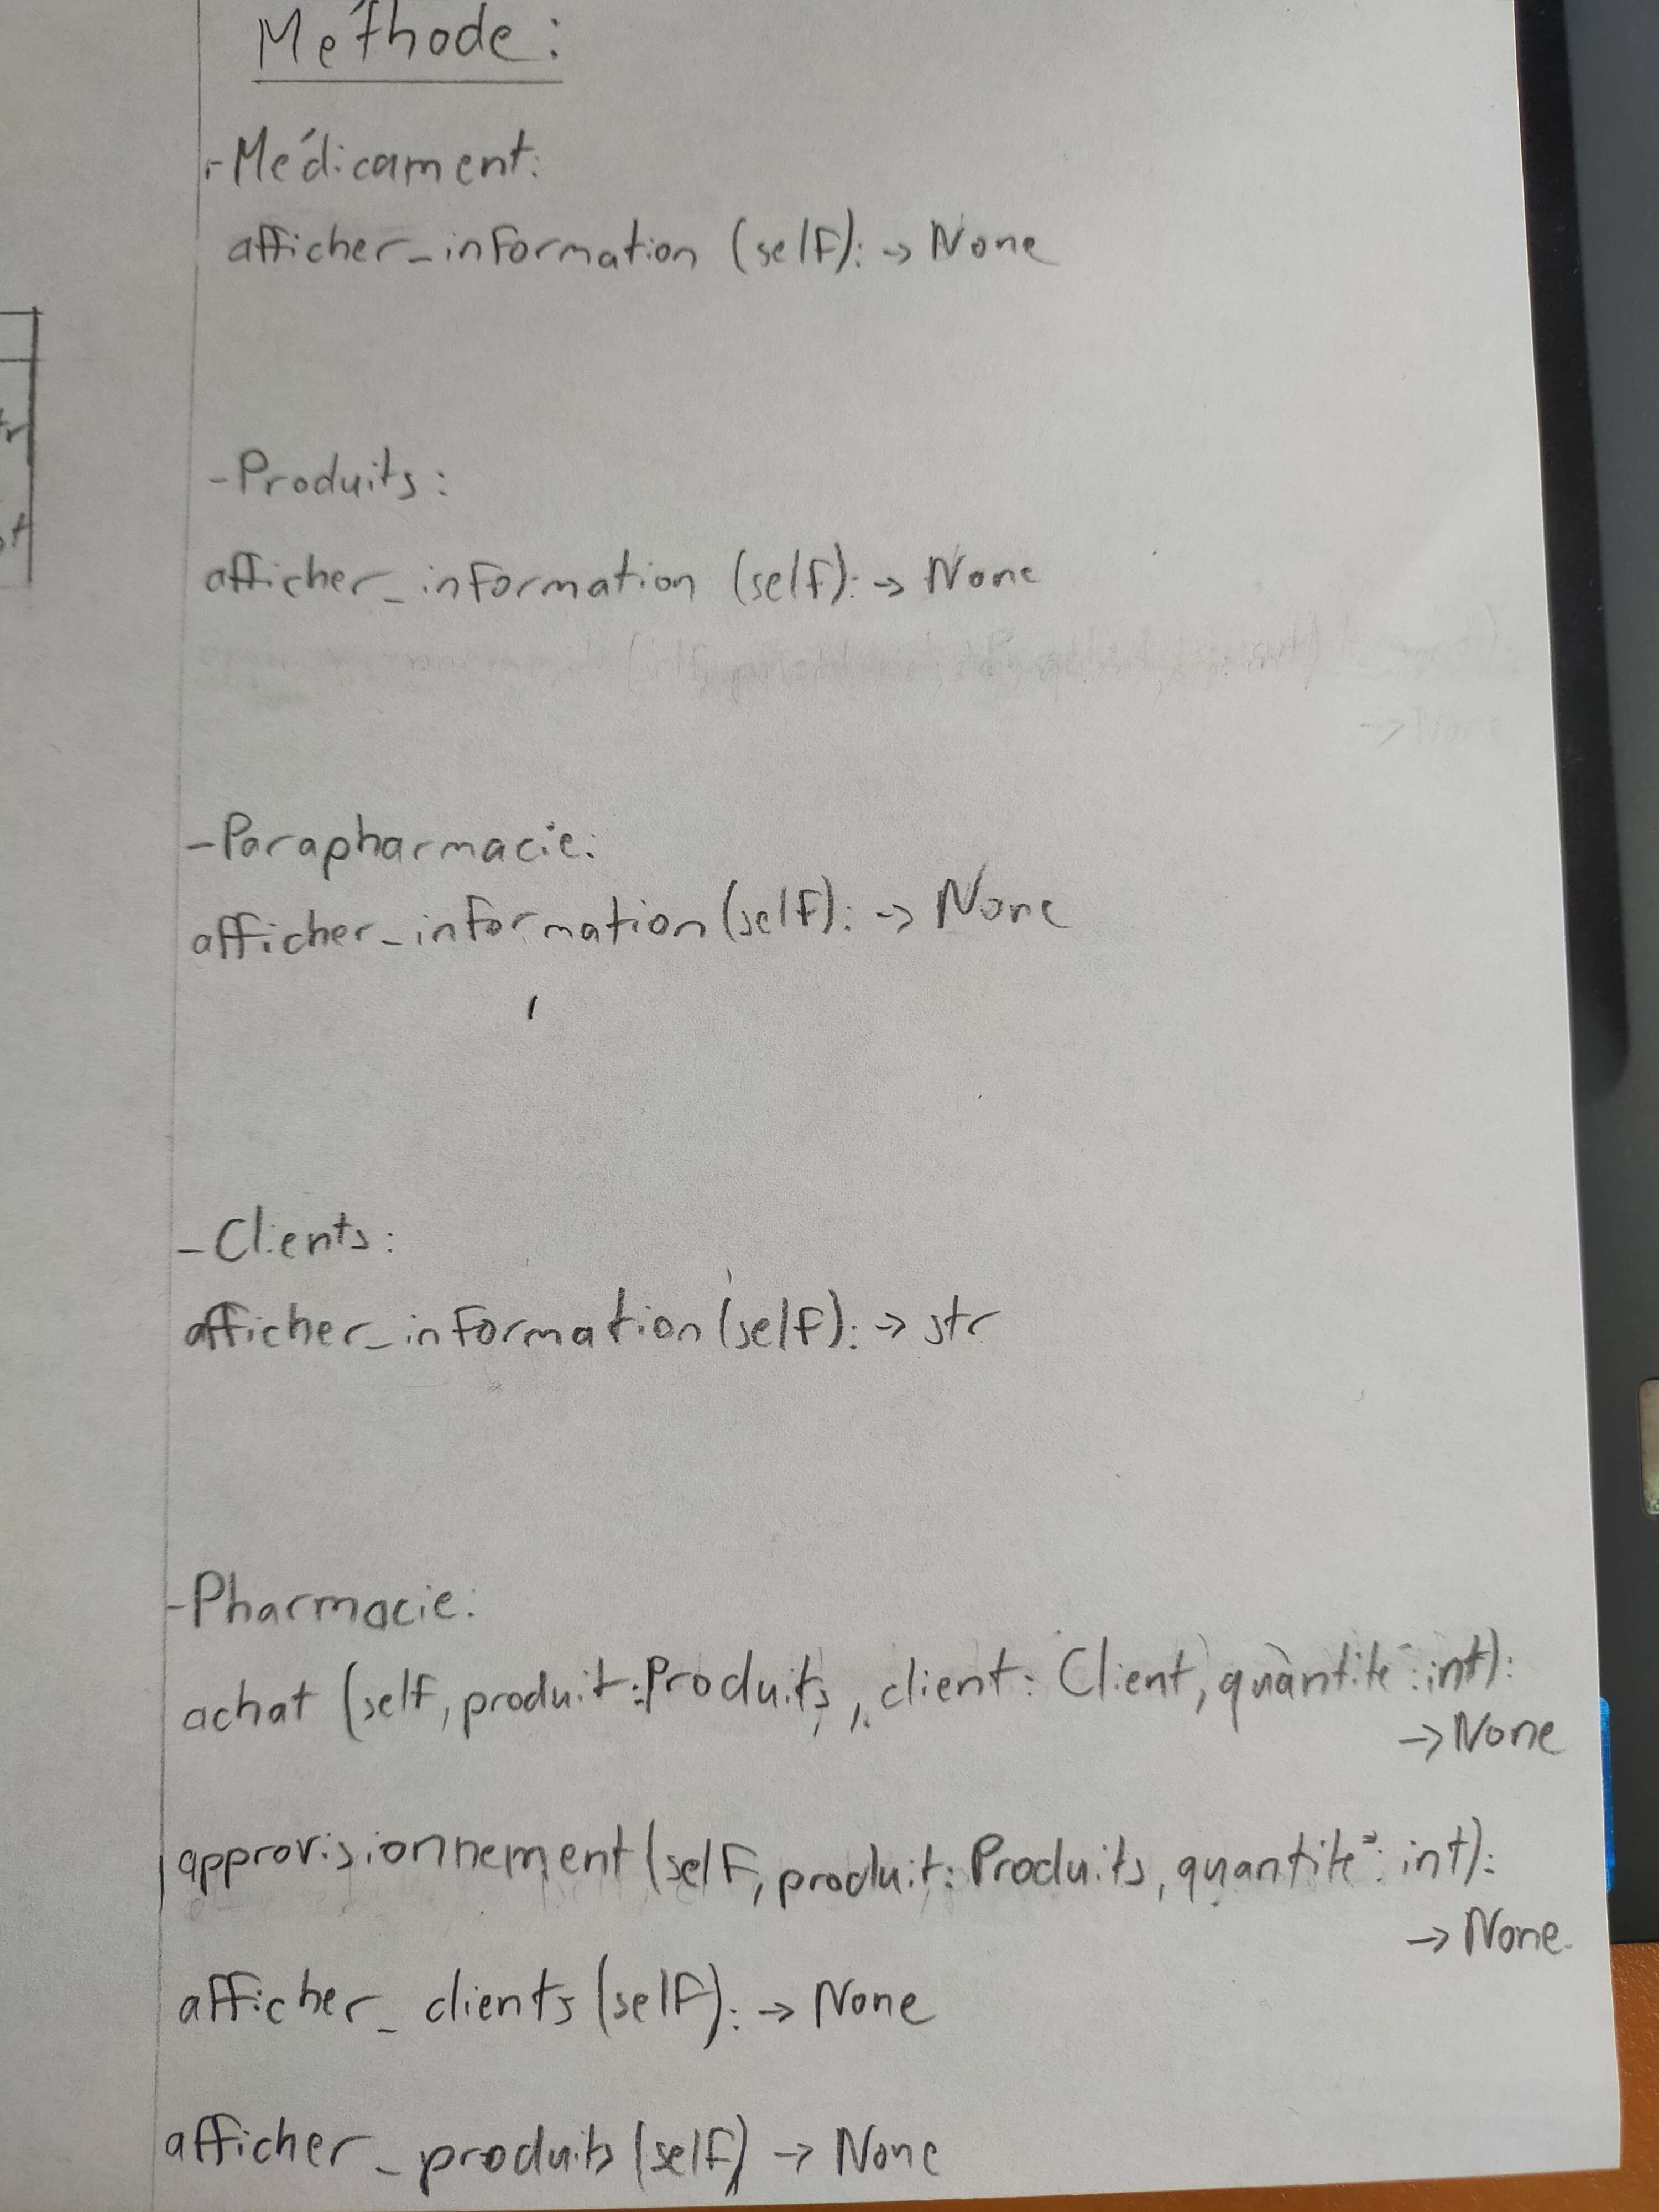 Méthode:
-Médicament:
afficher_information (self): -> None
tr
ot
-Produits:
afficher_information (self): -> None
-> None
-Parapharmacie:
afficher_information (self): -> None
-Clients:
afficher_information (self): -> str
-Pharmacie:
achat (self, produit: Produits, client: Client, quantité: int):
-> None
approvisionnement (self, produit: Produits, quantité: int):
-> None
afficher_clients (self): -> None
afficher_produits (self) -> None